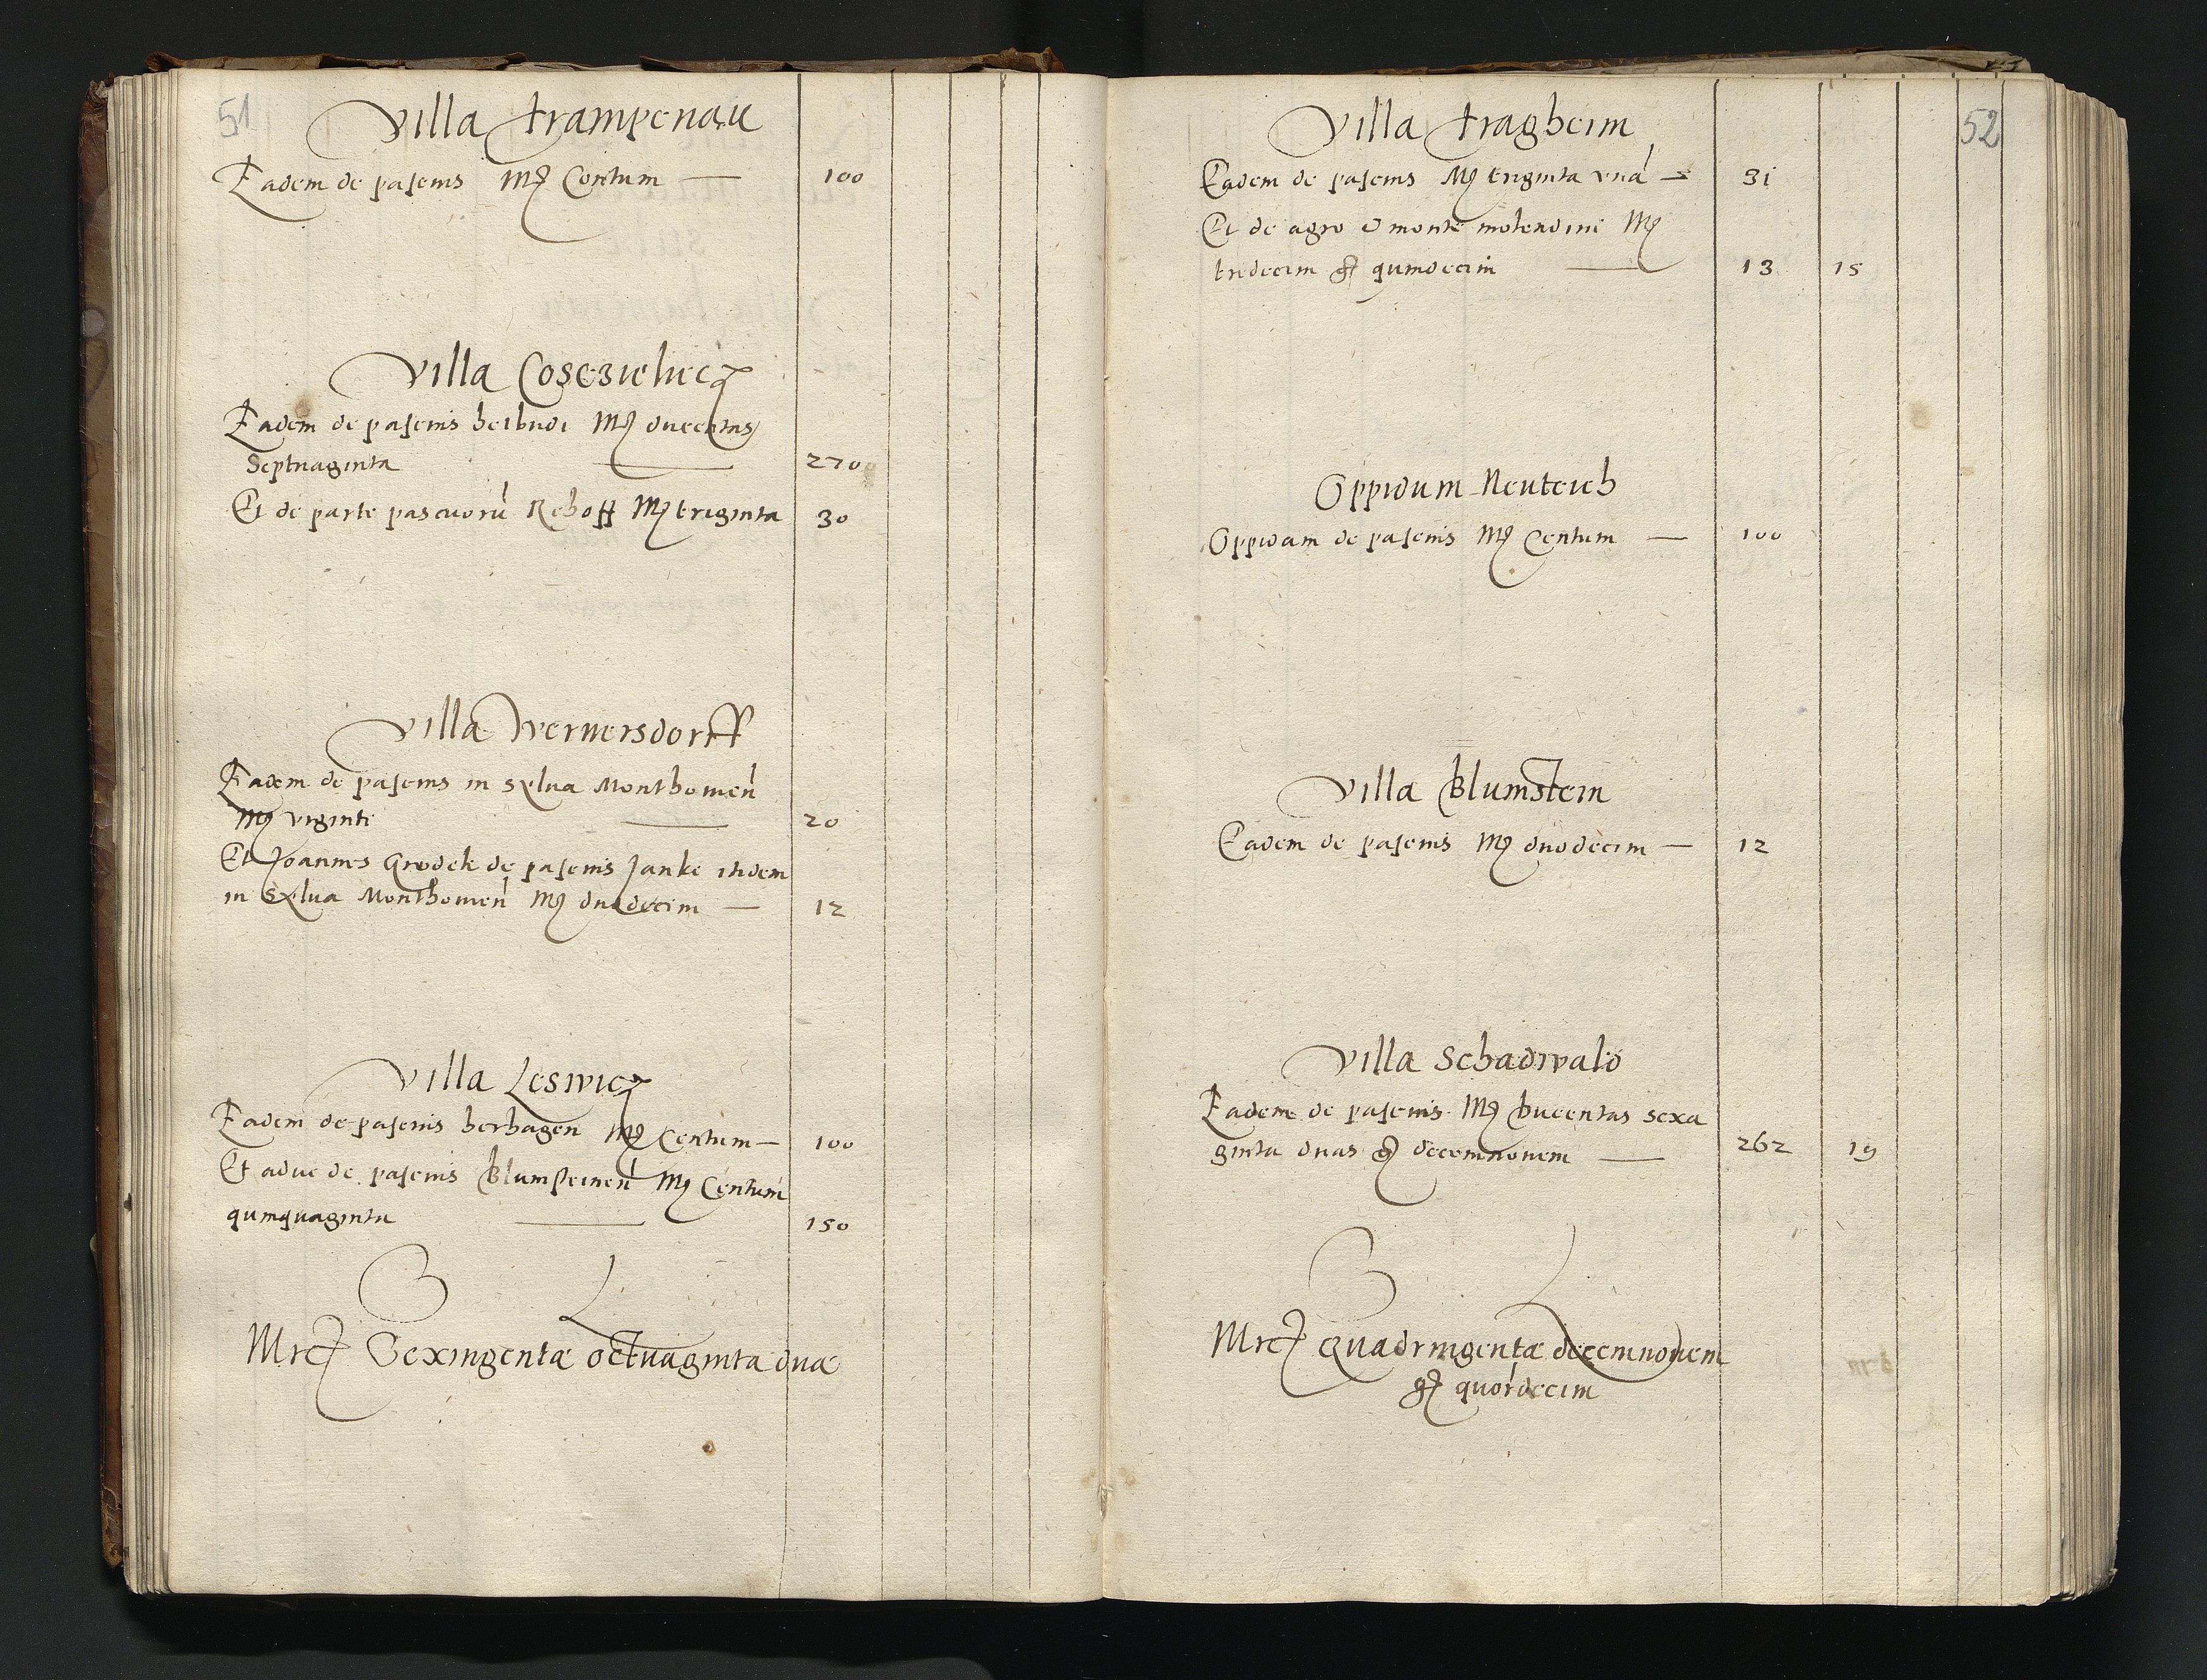 51
Villa Trampenau
Eadem de paſcuis Mꝝ Centum — 100
Villa Coseʒielecz
Eadem de paſcuis heibudi Mꝝ ducentas
Septuaginta — 270
Et de parte pascuorū Rehoff Mꝝ triginta 30
Villa Wernersdorff
Eadem de paſcuis in sylua Monthouien̄
Mꝝ viginti — 20
Et Joannes Grodek de paſcuis Janke itidem
in Sylua Monthouien̄ Mꝝ duodecim — 12
Villa Leswicz
Eadem de paſcuis herhagen Mꝝ Centum — 100
Et adue de paſcuis Blumsteinen̄ Mꝝ Centum
quinquaginta — 150
Mrcꝝ Sexingenta octuaginta duæ
52
Villa Tragheim
Eadem de paſcuis Mꝝ triginta vnā — 31
Et de agro e monte molendini Mꝝ
tridecim gꝝ quindecim — 13 15
Oppidum Neuteich
Oppidam de paſcuis Mꝝ Centum — 100
Villa Blumstein
Eadem de paſcuis Mꝝ duodecim — 12
Villa Schadwald
Eadem de paſcuis Mꝝ Ducentas sexa
ginta duas gꝝ decemnouem — 262 19
Mrcꝝ Quadringentæ decemnouem
gꝝ quordecim